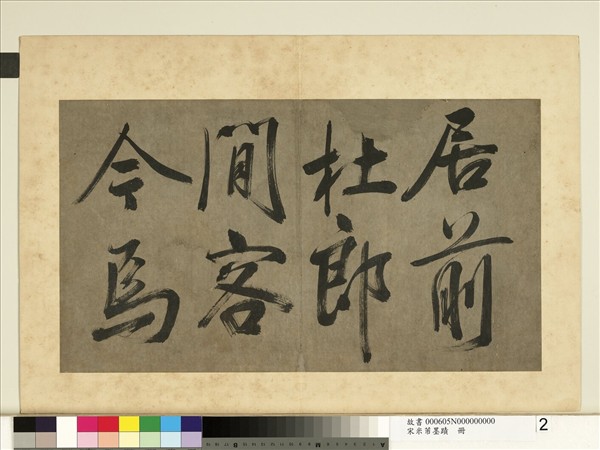 居前
杜郎
閒客
今焉
故書000605N000000000
宋米芾墨蹟 冊
2